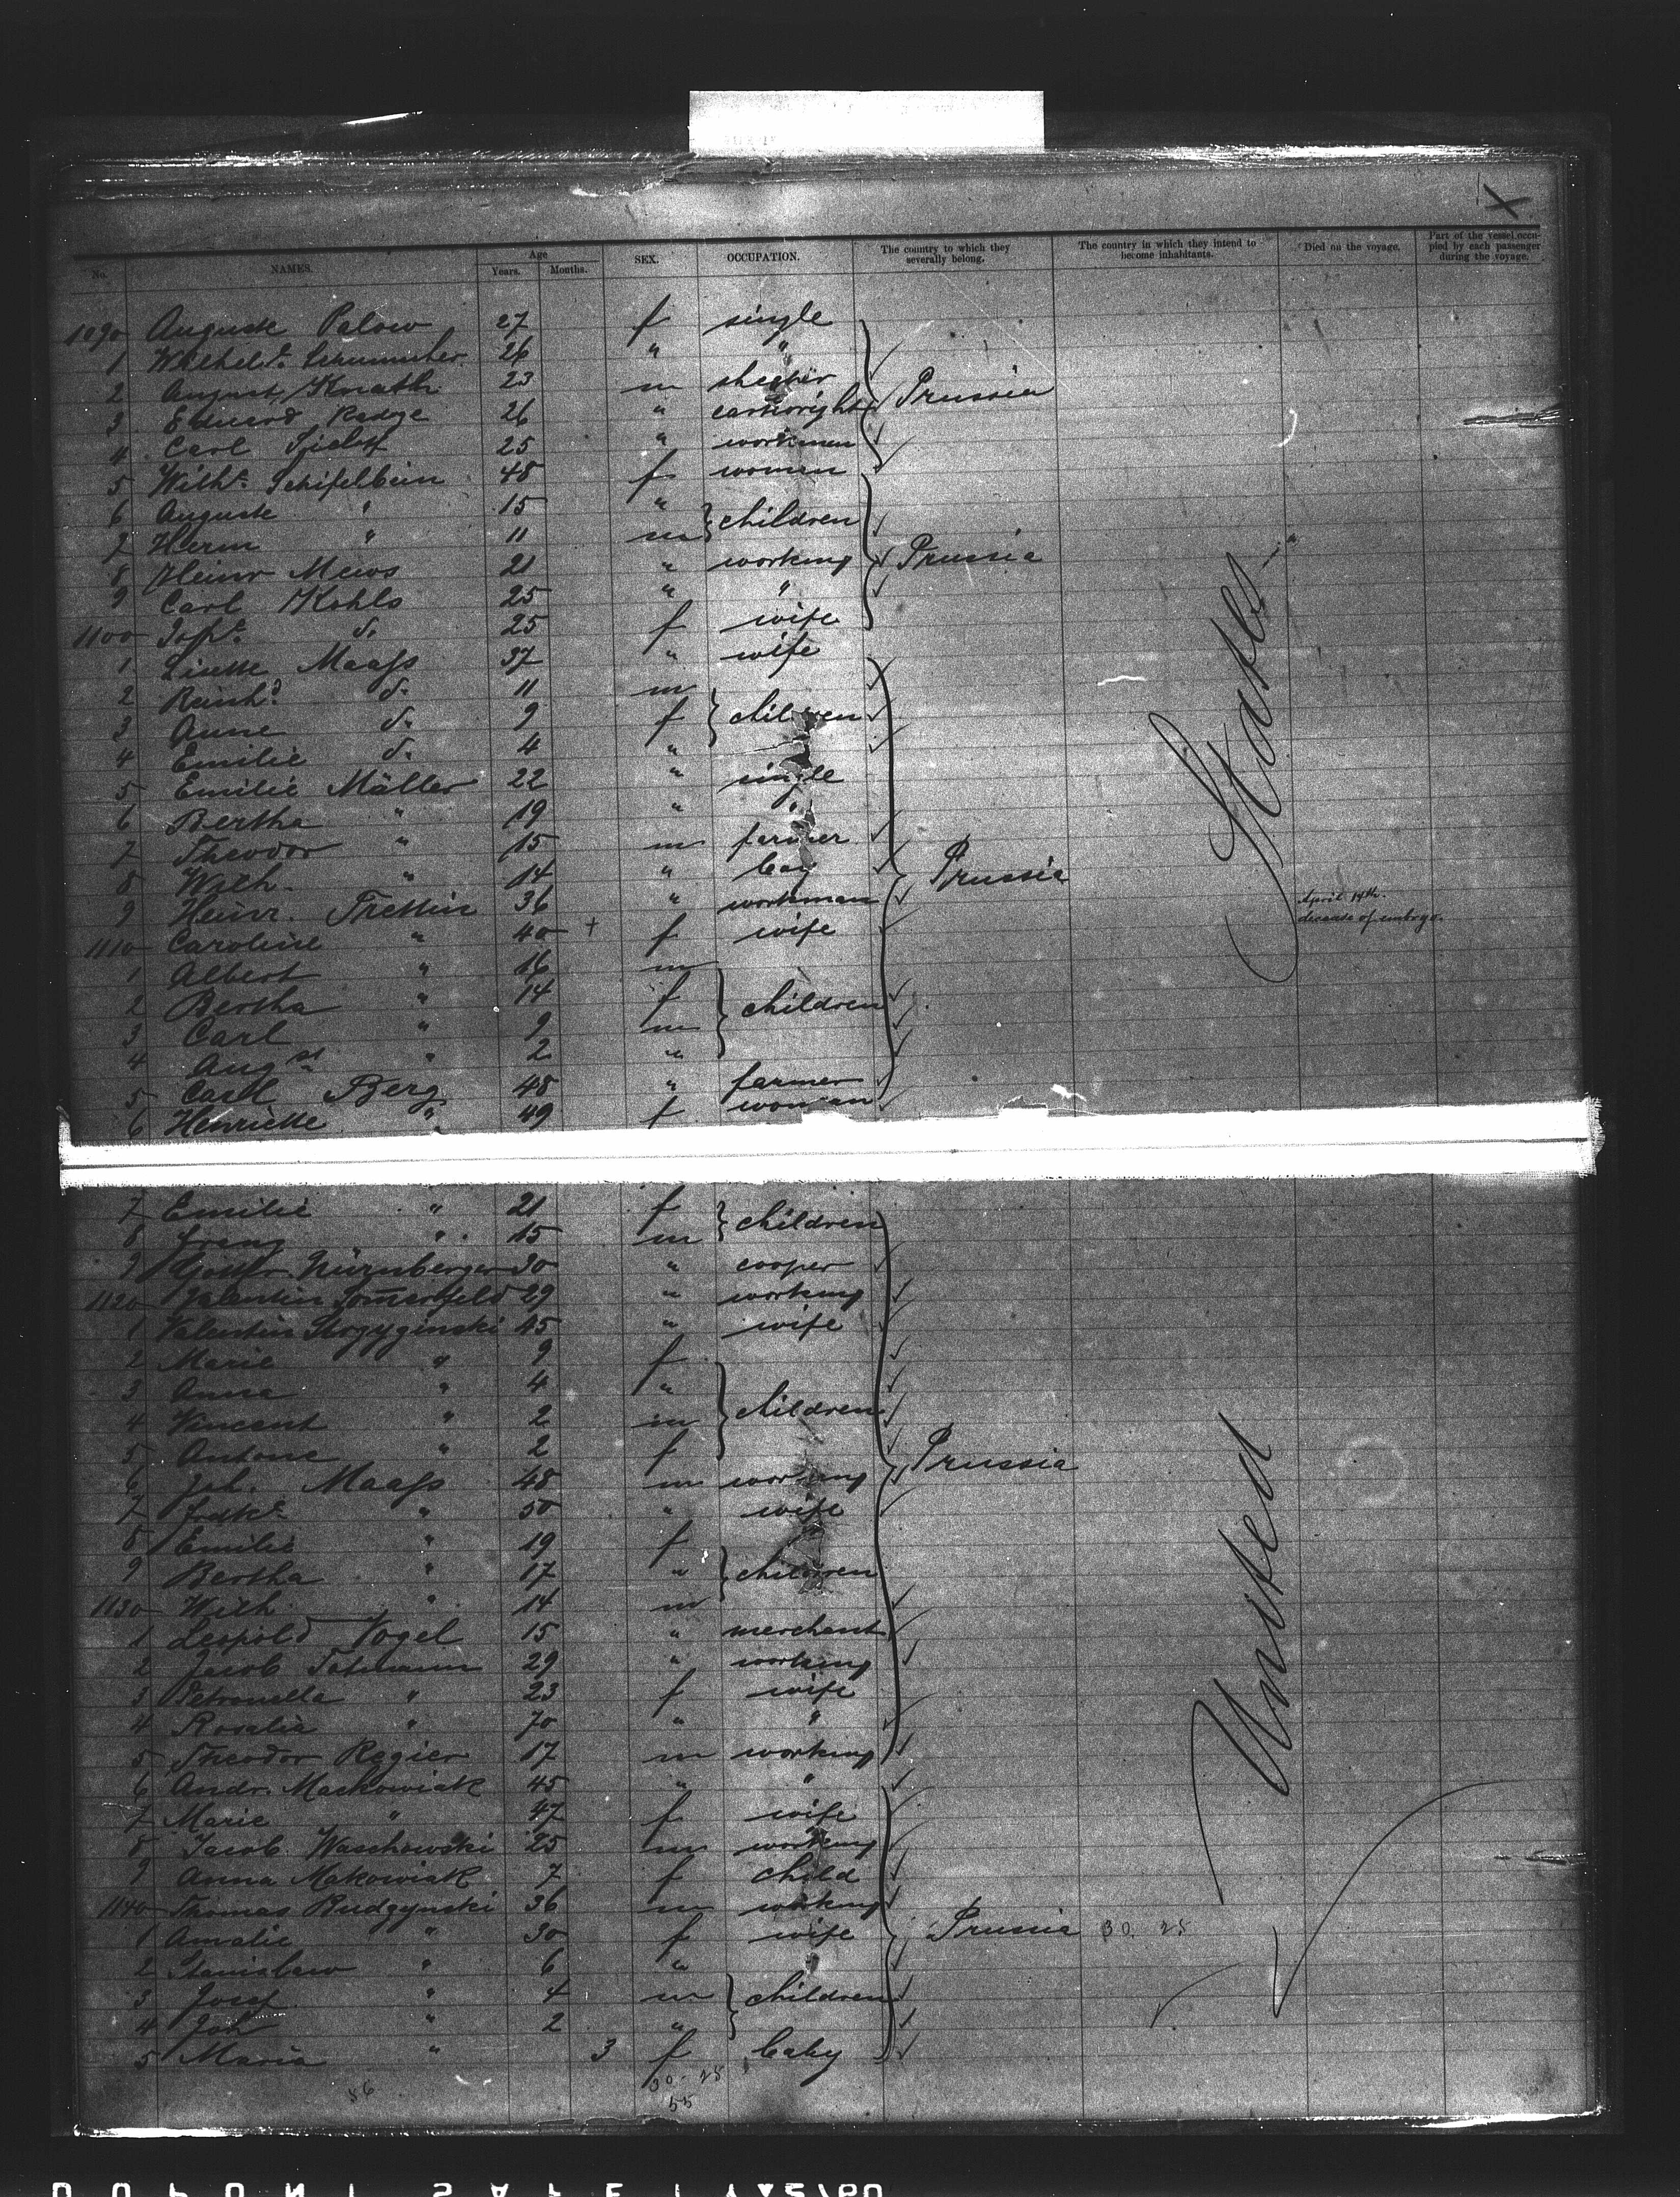 No. NAMES. Age Years. Months. SEX. OCCUPATION. The country to which they severally belong. The country in which they intend to become inhabitants. Died on the voyage. Part of the vessel occupied by each passenger during the voyage.
1090 Auguste Palow 27 f single
1 Wilhel. Schumacher 26 " "
2 August Knath 23 m Prussia
3 Eduard Radge 26 " cartwright
4 Carl 25 " workman
5 Wilh. Schifelbein 48 f woman
6 Auguste " 15 " children
7 Herm " 11 m
8 Heinr Mews 21 " working Prussia
9 Carl Kohls 25 " "
1100 Soph. d. 25 f wife
1 Maass 37 " wife
2 Reinh. d. 11 m
3 Anne d. 9 f children
4 Emilie d. 4 "
5 Emilie Müller 22 " single
6 Bertha " 19 " "
7 Theodor " 15 m farmer
8 Wilh. " 14 " boy Prussia
9 Heinr. Trettin 36 " workman April 14th.
1110 Caroline " 40 + f wife decease of embryo.
1 Albert " 16 m
2 Bertha " 14 f children
3 Carl " 9 m
4 Augst " 2 "
5 Carl Berg 48 " farmer
6 Henriette " 49 f woman
7 Emilie " 21 f children
8 Franz " 15 m
9 Nürnberger 30 " cooper
1120 Valentin Somerfeld 29 " working
1 Valentin 45 " wife
2 Marie " 9 f
3 Anna " 4 "
4 Vincent " 2 m children
5 Antone " 2 f Prussia
6 Joh. Maass 48 m working
7 Fredke " 50 " wife
8 Emilie " 19 f
9 Bertha " 17 " children
1130 Wilh. " 14 m
1 Leopold Vogel 15 " merchant
2 Jacob 29 " working
3 Petronella " 23 f wife
4 Rosalie " 70 " "
5 Theodor Regier 17 m working
6 Andr. Mackowiak 45 " "
7 Marie " 47 f wife
8 Jacob Waschowski 25 m working
9 Anna Makowiak 7 f child
1140 Thomas Rudzynski 36 m working
1 Amalie " 30 f wife Prussia 30. 25
2 Stanislaw " 6 "
3 Josef " 4 m children
4 Joh " 2 "
5 Maria " 3 f baby
56 30-25
55
United States